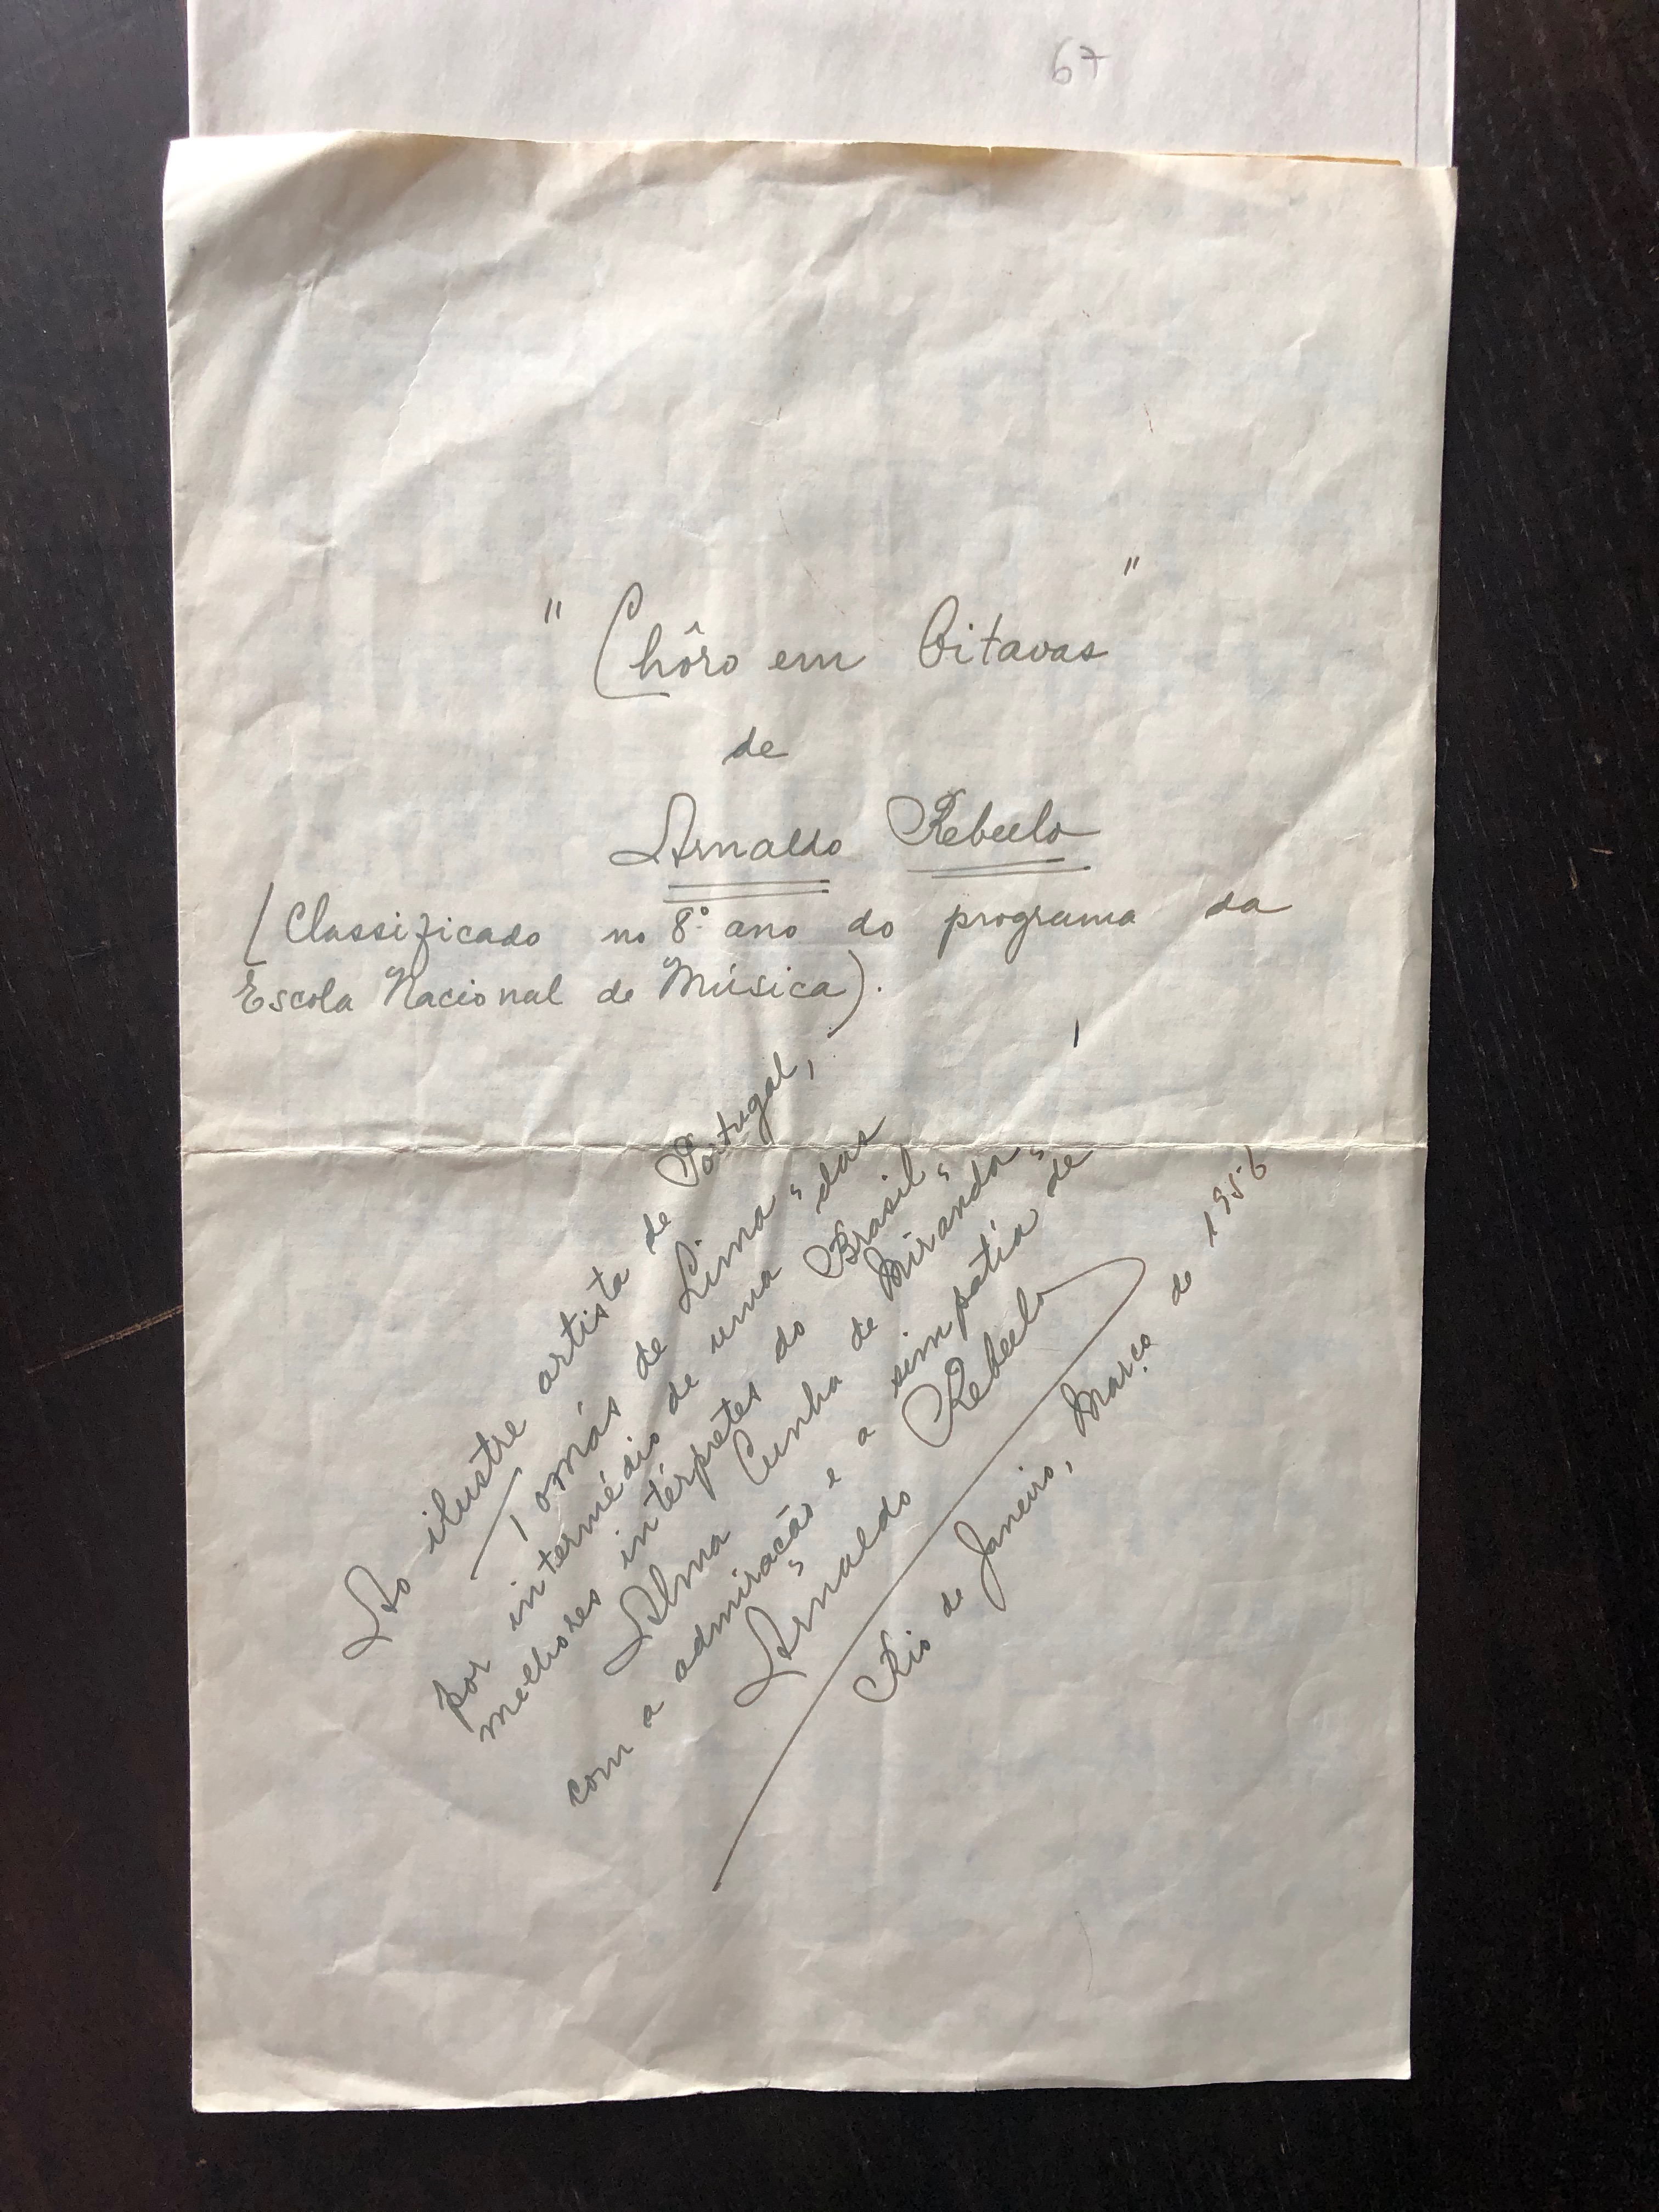 67
" Chôro em Oitavas "
de
Arnaldo Rebello
(Classificado no 8º ano do programa da
Escola Nacional de Música).
Ao ilustre artista de Portugal,
Tomás de Lima,
por intermédio de uma "das
melhores intérpretes do Brasil",
Alma Cunha de Miranda,
com a admiração e a simpatia de
Arnaldo Rebello
Rio de Janeiro, Março de 1956